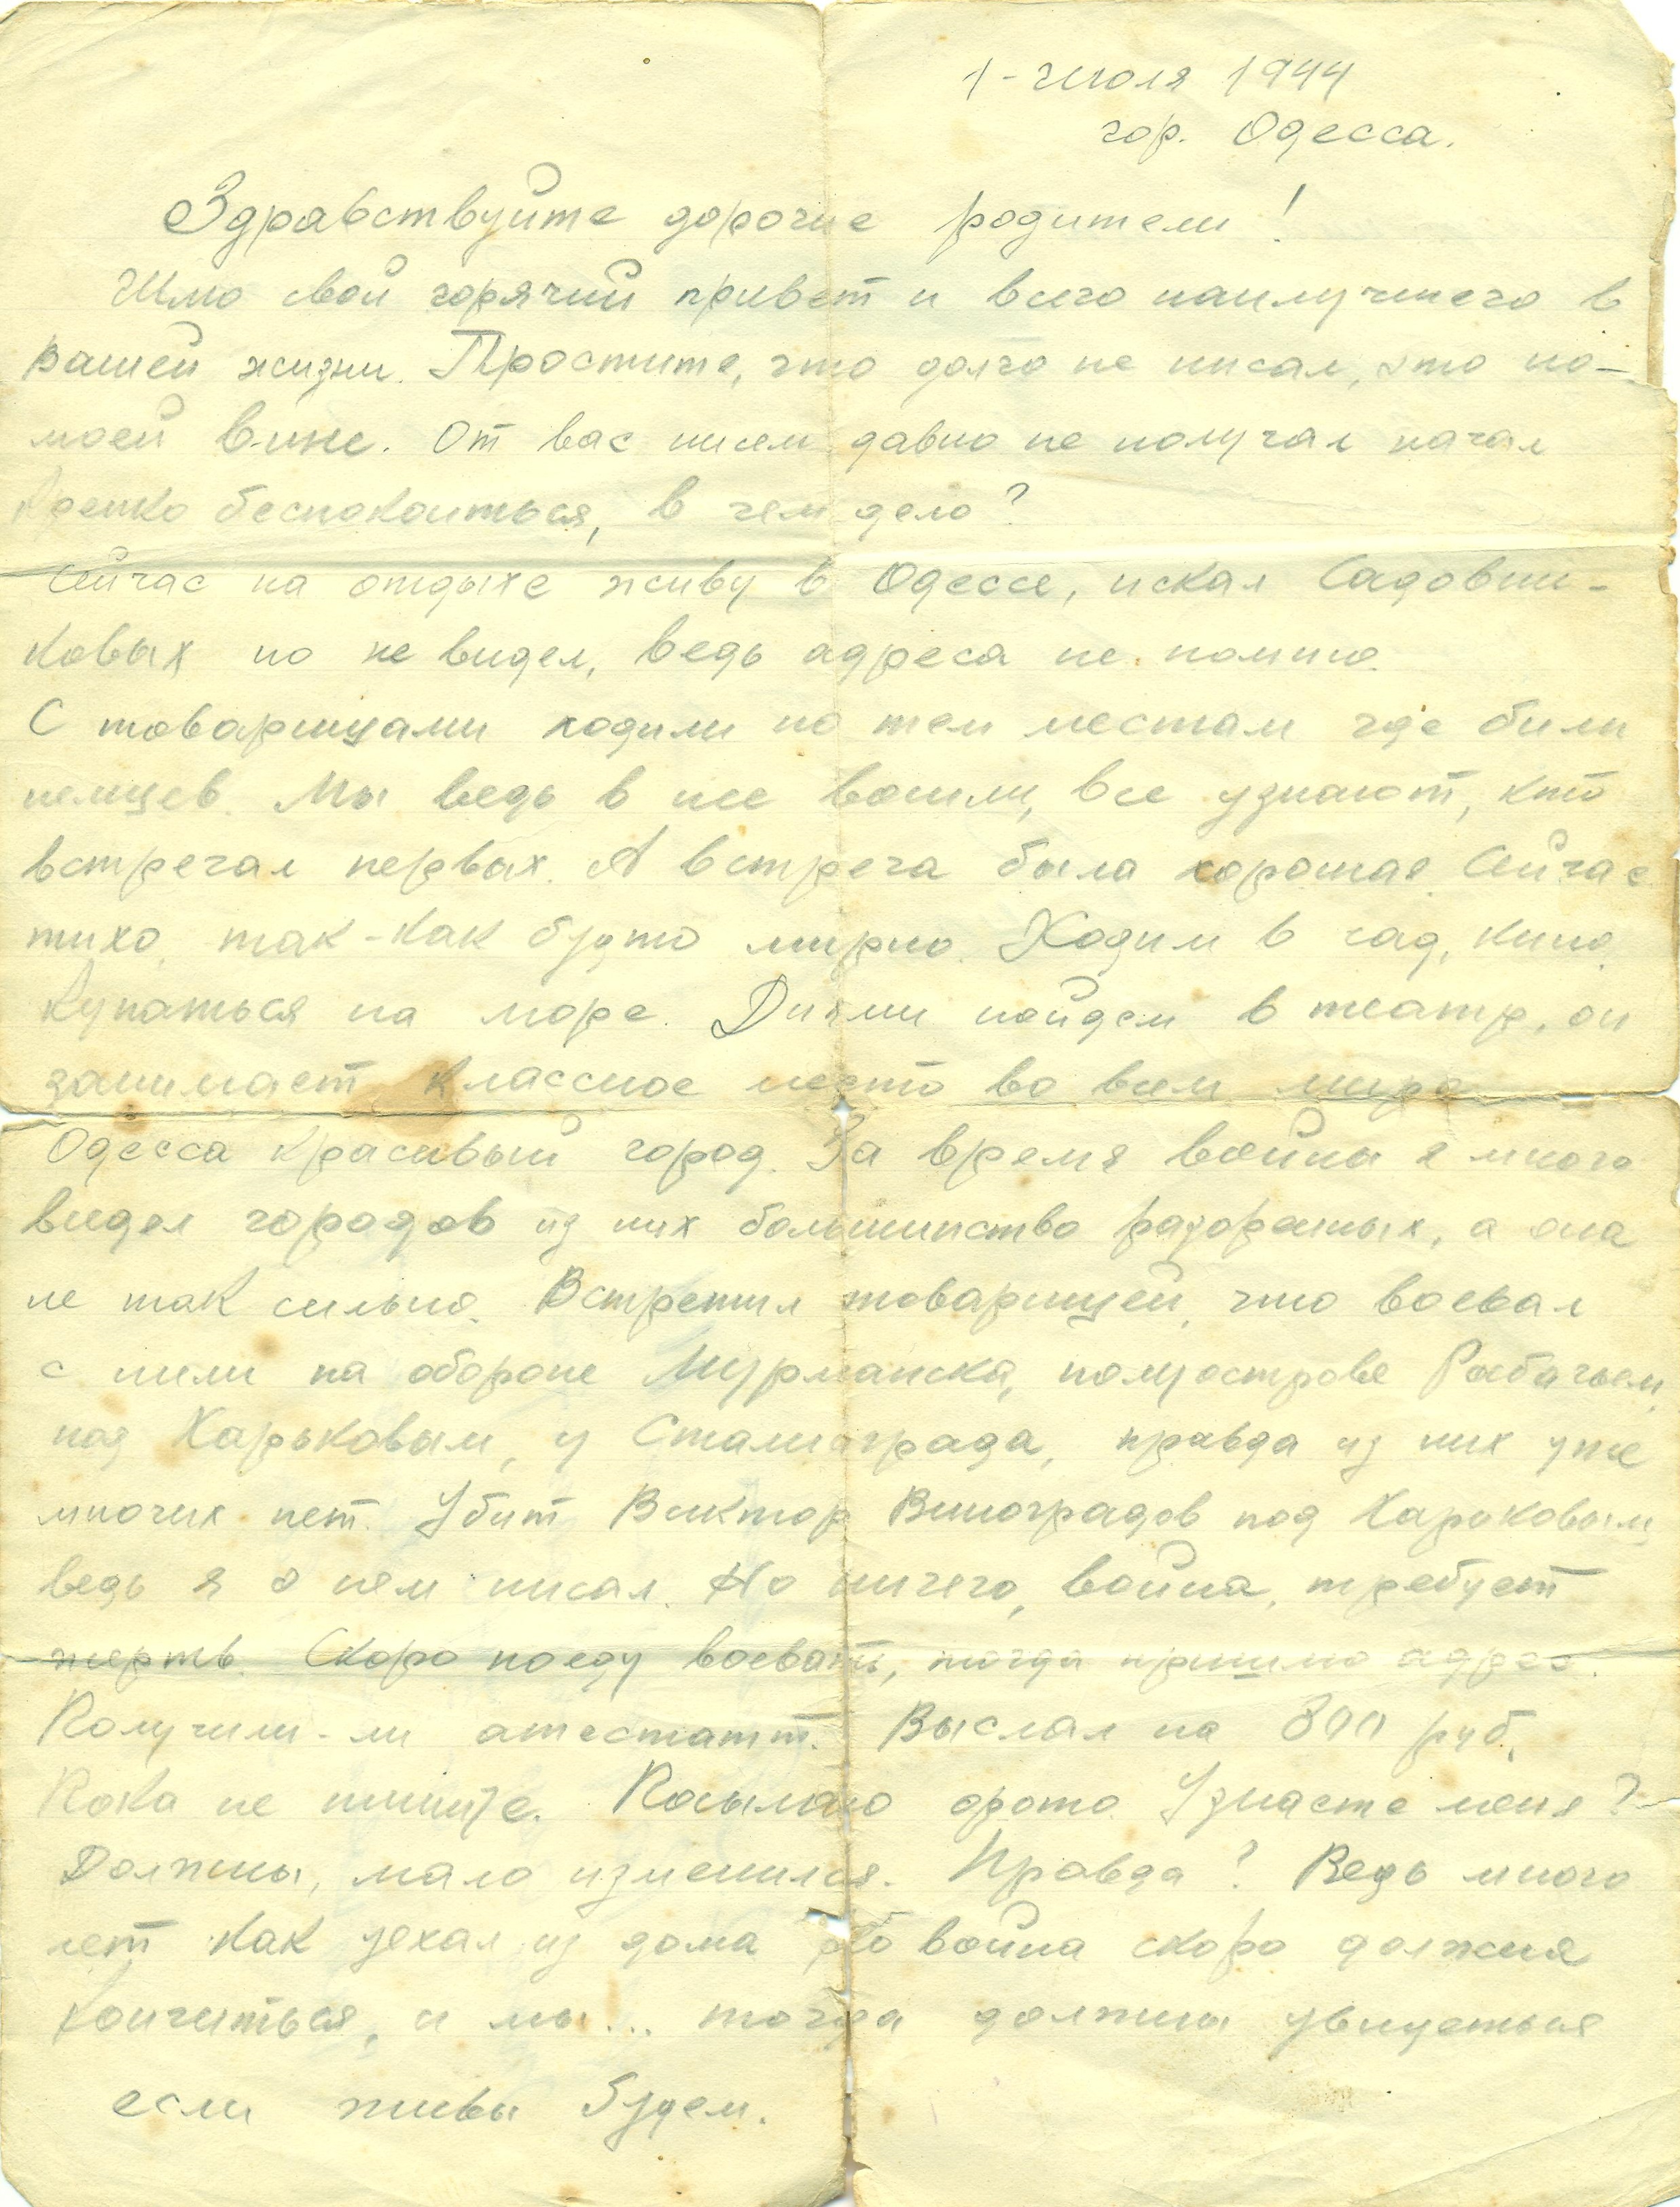 1-Июля 1944
гор. Одесса.
Здравствуйте дорогие родители!
Шлю свой горячий привет и всего наилучшего в
вашей жизни. Простите, что долго не писал, это по-
моей вине. От вас писем давно не получал начал
крепко беспокоиться, в чем дело?
Сейчас на отдыхе живу в Одессе, искал Садовни-
ковых но не видел, ведь адреса не помню.
С товарищами ходили по тем местам где били
немцев. Мы ведь в нее вошли, все узнают, кто
встречал первых. А встреча была хорошая. Сейчас
тихо, так-как будто мирно. Ходим в сад, кино,
купаться на море. Днями пойдем в театр, он
занимает классное место во всем мире
Одесса красивый город. За время войны я много
видел городов из них большинство разореных, а она
не так сильно. Встретил товарищей, что воевал
с ними на обороне Мурманска, полуострове Рыбачьем,
под Харьковым, у Сталинграда, правда из них уже
многих нет. Убит Виктор Виноградов под Харьковым
ведь я о нем писал. Но ничего, война, требует
жертв. Скоро поеду воевать, тогда пришлю адрес.
Получили-ли атестатт. Выслал на 800 руб.
Пока не пишите. Посылаю фото. Узнаете меня?
Должны, мало изменился. Правда? Ведь много
лет как уехал из дома Но война скоро должна
кончиться, и мы... тогда должны увидеться
если живы будем.